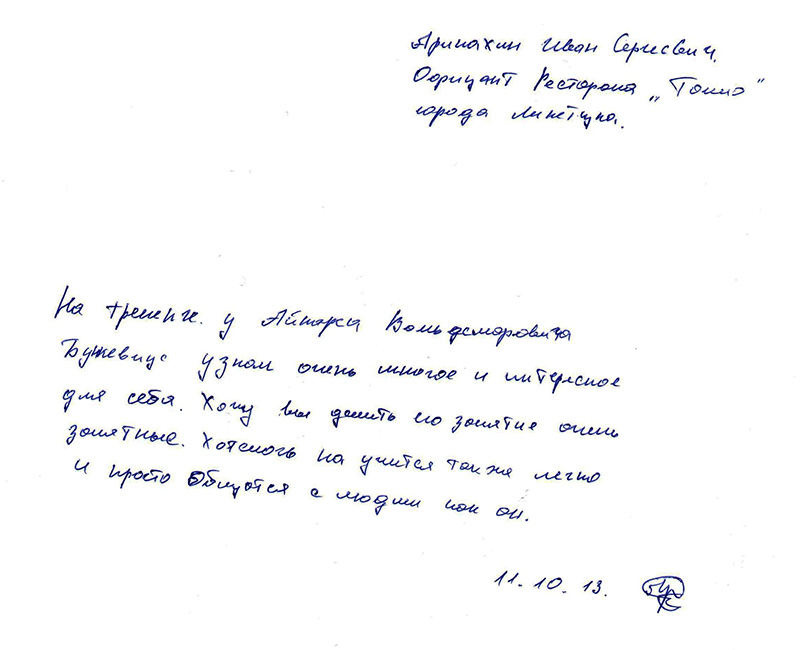 Арипахин Иван Сергеевич.
Офрицант Ресторана „Токио"
города
На тренинге. у Айварса Вольдемаровича
Бушевица узнал очень многое и интересное
для себя. Хочу вы делить его занятие очень
занятные. Хотелось на учится также легко
и просто Общатся с людми как он.
11.10.13.